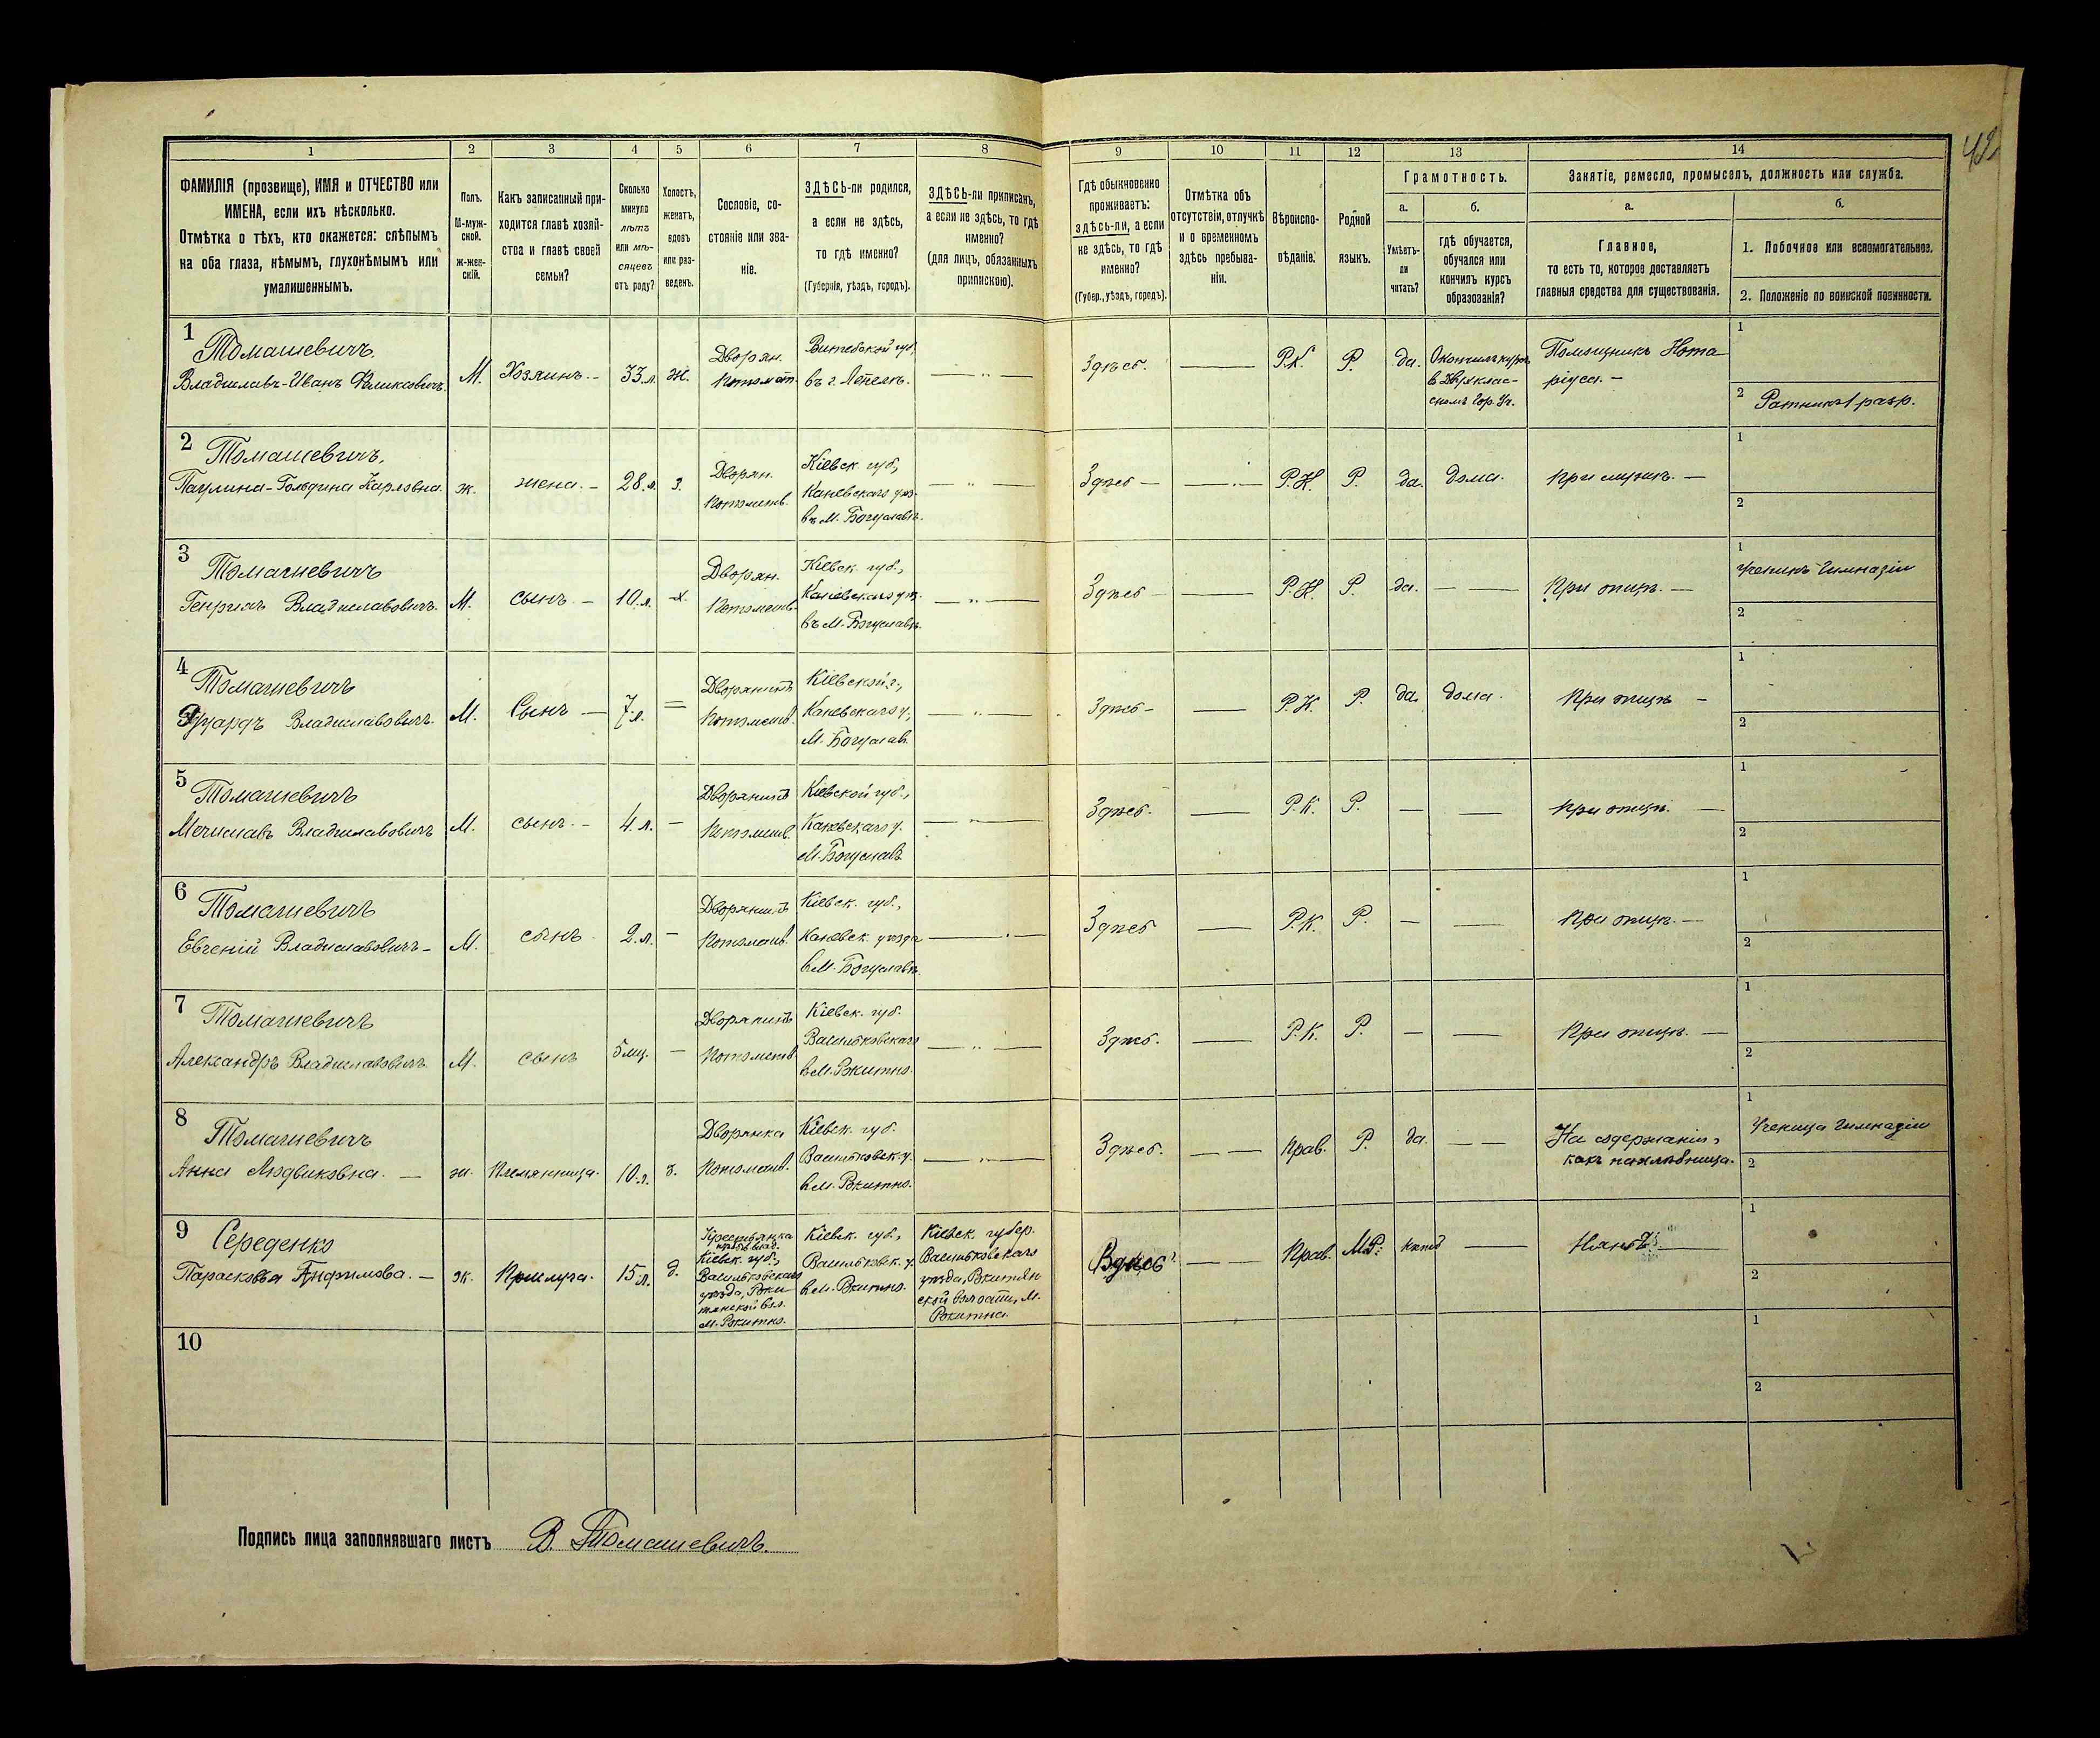 42
1 2 3 4 5 6 7 8 9 10 11 12 13 14
ФАМИЛІЯ (прозвище), ИМЯ и ОТЧЕСТВО или
ИМЕНА, если ихъ нѣсколько.
Отмѣтка о тѣхъ, кто окажется: слѣпымъ
на оба глаза, нѣмымъ, глухонѣмымъ или
умалишеннымъ.
Полъ.
М-муж-
ской.
ж-жен-
скій.
Какъ записанный при-
ходится главѣ хозяй-
ства и главѣ своей
семьи?
Сколько
минуло
лѣтъ
или мѣ-
сяцевъ
отъ роду?
Холостъ,
женатъ,
вдовъ
или раз-
веденъ.
Сословіе, со-
стояніе или зва-
ніе.
ЗДѢСЬ-ли родился,
а если не здѣсь,
то гдѣ именно?
(Губернія, уѣздъ, городъ).
ЗДѢСЬ-ли приписанъ,
а если не здѣсь, то гдѣ
именно?
(для лицъ, обязанныхъ
припискою).
Гдѣ обыкновенно
проживаетъ:
здѣсь-ли, а если
не здѣсь, то гдѣ
именно?
(Губер., уѣздъ, городъ).
Отмѣтка объ
отсутствіи, отлучкѣ
и о временномъ
здѣсь пребыва-
ніи.
Вѣроиспо-
вѣданіе.
Родной
языкъ.
Грамотность.
а.
Умѣетъ-
ли
читать?
б.
гдѣ обучается,
обучался или
кончилъ курсъ
образованія?
Занятіе, ремесло, промыселъ, должность или служба.
а.
Главное,
то есть то, которое доставляетъ
главныя средства для существованія.
б.
1. Побочное или вспомогательное.
2. Положеніе по воинской повинности.
1
Томашевичъ.
Владиславъ-Иванъ Феликсовичъ.
М.
Хозяинъ. —
33. л.
ж.
Дворян.
Потомств.
Витебской губ,
въ г. Лепелѣ.
— " —
Здѣсь.
—
Р.К
Р.
да.
Окончилъ курсъ
в Двухклас-
сномъ Гор. Уч.
Помощникъ Нота
ріуса. —
1
2 Ратникъ 1 разр.
2
Томашевичъ,
Паулина-Гольдина Карловна.
ж.
жена. —
28. л.
з.
Дворян.
Потомств.
Кіевск. губ,
Каневскаго уѣз.
въ М. Богуславѣ.
— " —
Здѣсь —
—
Р.К.
Р.
да.
дома.
при мужѣ. —
1
2
3
Томашевичъ
Генрихъ Владиславовичъ.
М.
сынъ. —
10. л.
х.
Дворян.
Потомств.
Кіевск. губ.,
Каневскаго уѣз.
въ М. Богуславѣ.
— " —
Здѣсь —
—
Р.К.
Р.
да.
— —
При отцѣ. —
1
Ученикъ Гимназіи
2
4
Томашевичъ
Эдуардъ Владиславовичъ.
М.
Сынъ —
7. л.
=
Дворянинъ
Потомств.
Кіевской г.,
Каневскаго у,
М. Богуслав.
— " —
Здѣсь —
—
Р.К.
Р.
да.
дома.
При отцѣ —
1
2
5
Томашевичъ
Мечиславъ Владиславовичъ
М.
сынъ. —
4. л.
—
Дворянинъ
Потомств.
Кіевской губ.,
Каневскаго у.
М. Богуславѣ
— " —
Здѣсь.
—
Р.К.
Р.
—
—
при отцѣ. —
1
2
6
Томашевичъ
Евгеній Владиславовичъ —
М.
сынъ
2. л.
—
Дворянинъ
Потомств.
Кіевск. губ.,
Каневск. уѣзда
в М. Богуславѣ.
— " —
Здѣсь
—
Р.К.
Р.
—
—
При отцѣ. —
1
2
7
Томашевичъ
Александръ Владиславовичъ.
М.
сынъ
5 мц.
—
Дворянинъ
Потомств.
Кіевск. губ.
Васильковскаго
в М. Рокитно.
— " —
Здѣсь.
—
Р.К.
Р.
—
—
При отцѣ. —
1
2
8
Томашевичъ
Анна Людвиковна. —
ж.
Племянница.
10. л.
д.
Дворянка
Потомств.
Кіевск. губ.
Васильковск. у.
в М. Рокитно.
— " —
Здѣсь.
— —
Прав.
Р.
да.
— —
На содержаніи,
какъ нахлѣбница.
1
Ученица Гимназіи
2
9
Середенко
Парасковья Анфимова. —
ж.
Прислуга.
15. л.
д.
Крестьянка
Кіевск. губ.,
Васильковскаго
уѣзда, Роки-
тянской вол.
М. Рокитно.
Кіевск. губ.,
Васильковск. у.
в М. Рокитно.
Кіевск. губер.
Васильковскаго
уѣзда, Рокитян
ской волости, М.
Рокитна.
Здѣсь
— —
Прав.
М.Р.
нѣтъ
—
Няня. —
1
2
10
1
2
Подпись лица заполнявшаго листъ В. Томашевичъ.